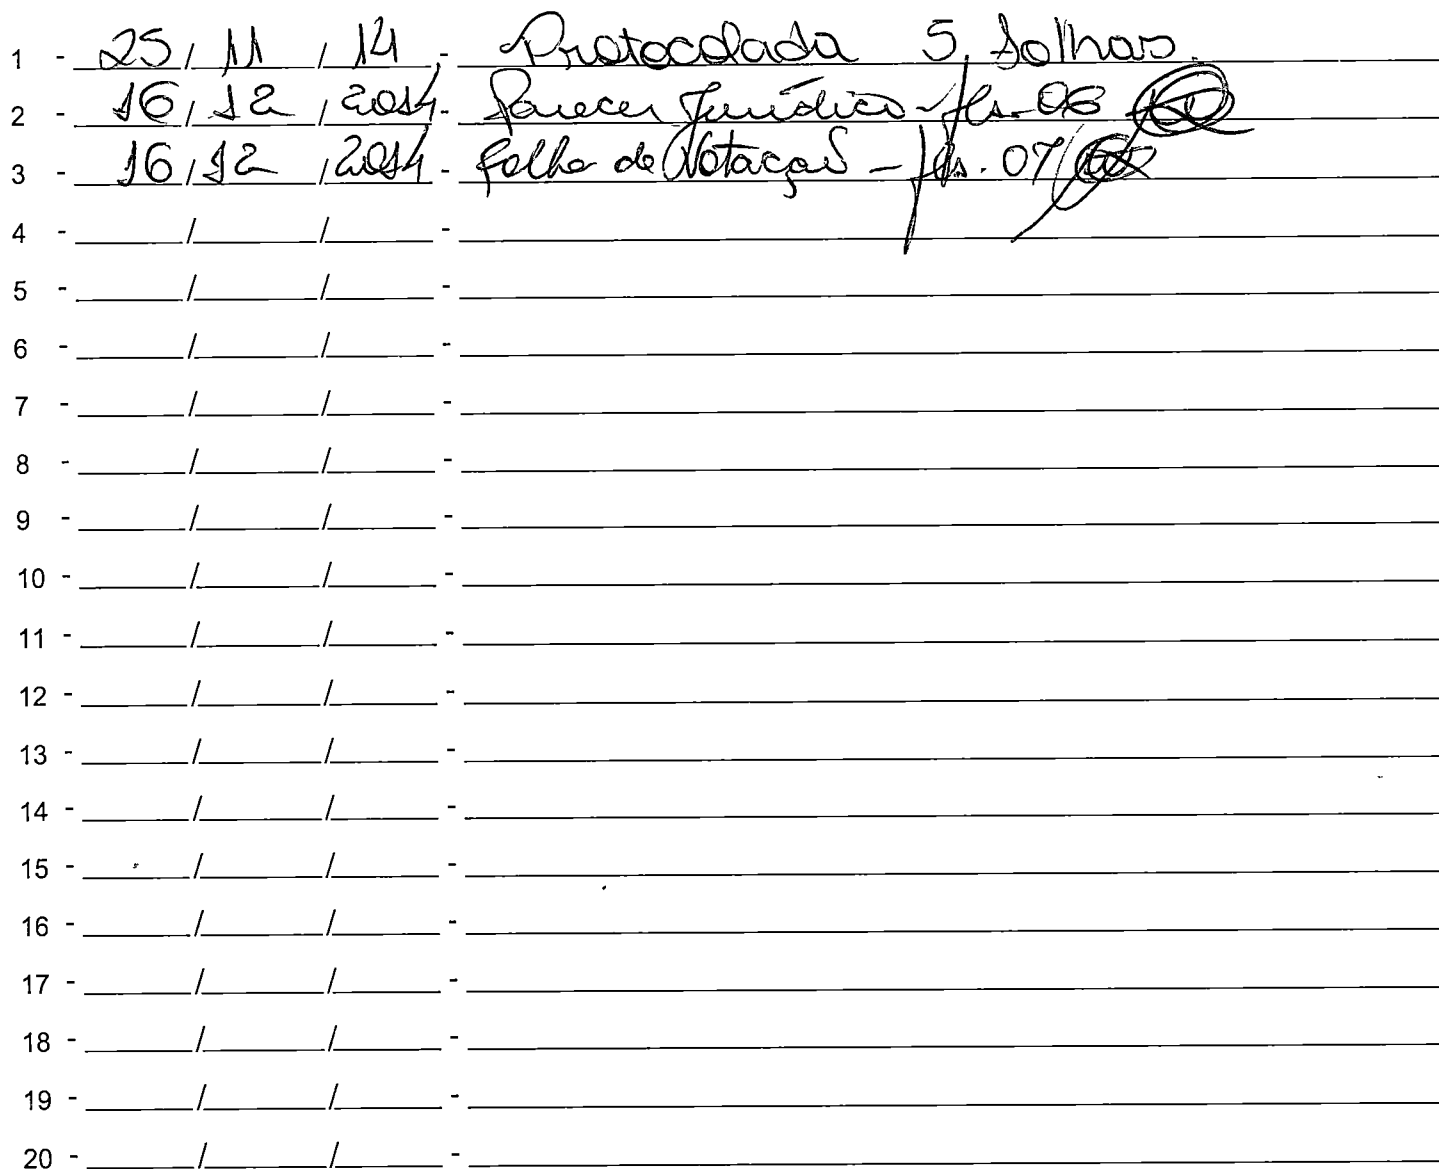 1 - 25 / 11 / 14 - Protocolada 5 folhas.
2 - 16 / 12 / 2014 - Parecer Jurídico - fls. 06
3 - 16 / 12 / 2014 - folha de Votação - fls. 07
4 - ____/____/____ -
5 - ____/____/____ -
6 - ____/____/____ -
7 - ____/____/____ -
8 - ____/____/____ -
9 - ____/____/____ -
10 - ____/____/____ -
11 - ____/____/____ -
12 - ____/____/____ -
13 - ____/____/____ -
14 - ____/____/____ -
15 - ____/____/____ -
16 - ____/____/____ -
17 - ____/____/____ -
18 - ____/____/____ -
19 - ____/____/____ -
20 - ____/____/____ -